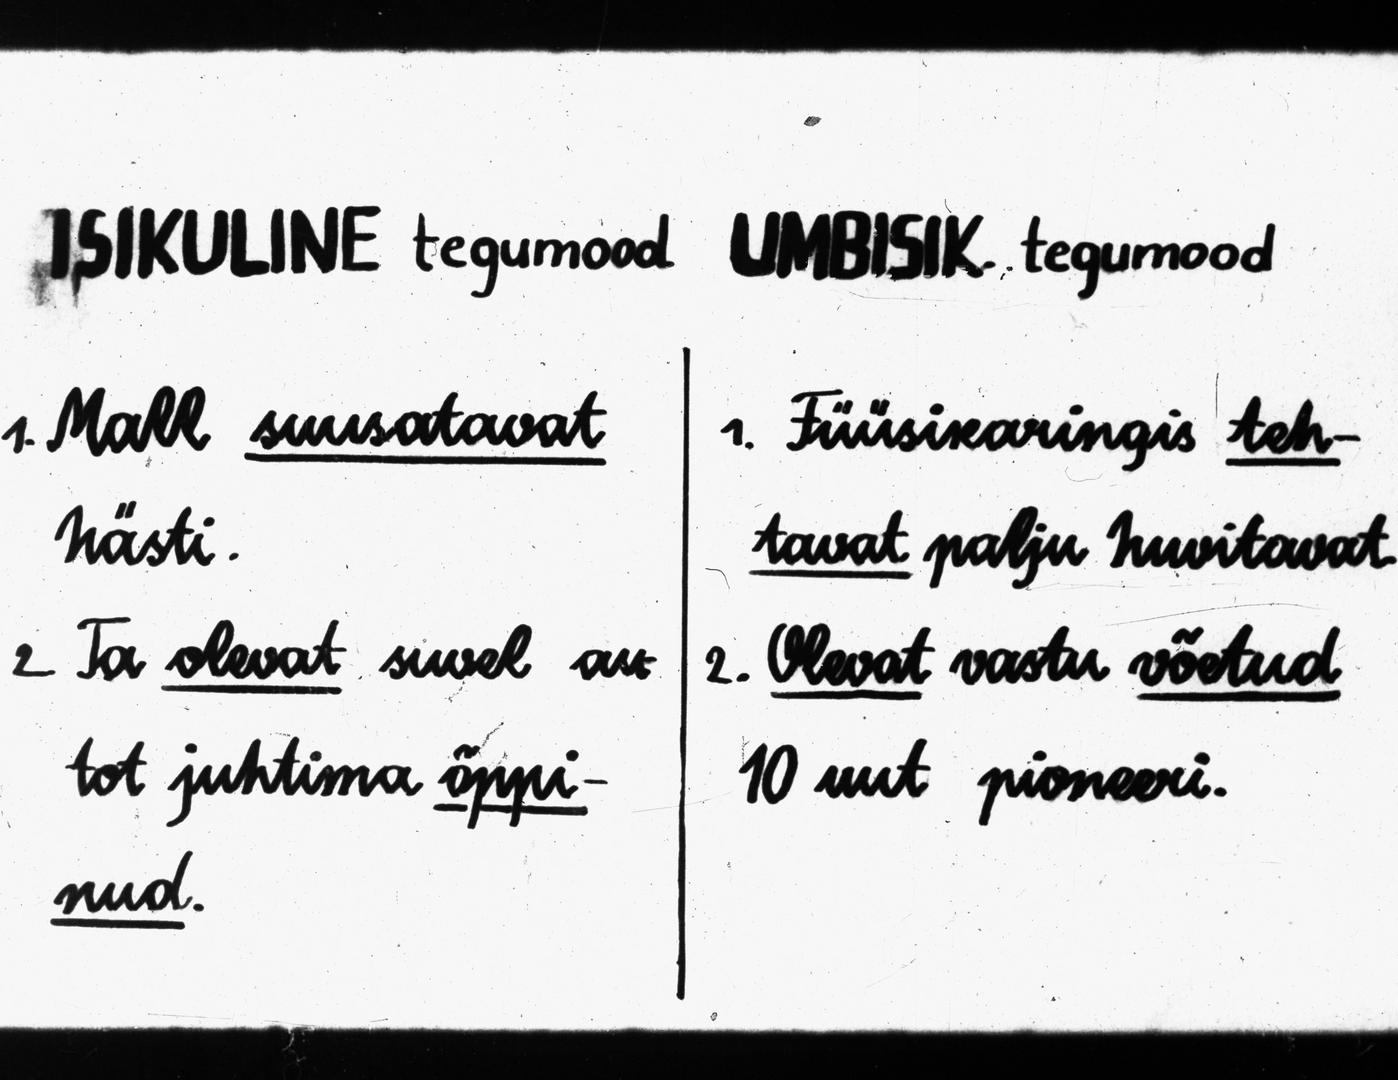 ISIKULINE tegumood
1. Mall suusatavat
hästi.
2. Ta olevat suvel au
tot juhtima õppi-
nud.
UMBISIK. tegumood
1. Füüsikaringis teh-
tavat palju huvitavat
2. Olevat vastu võetud
10 uut pioneeri.